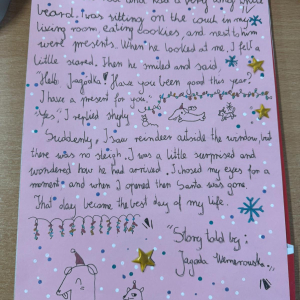 and had a very long white
beard. I was sitting on the couch in my
living room, eating cookies, and next to him
were presents. When he looked at me, I felt a
little scared. Then he smiled and said,
"Hello Jagódka! Have you been good this year?
I have a present for you."
"Yes," I replied shyly.
Suddenly, I saw reindeer outside the window, but
there was no sleigh. I was a little surprised and
wondered how he had arrived. I closed my eyes for a
moment and when I opened them Santa was gone.
That day became the best day of my life.
"Story told by:
Jagoda